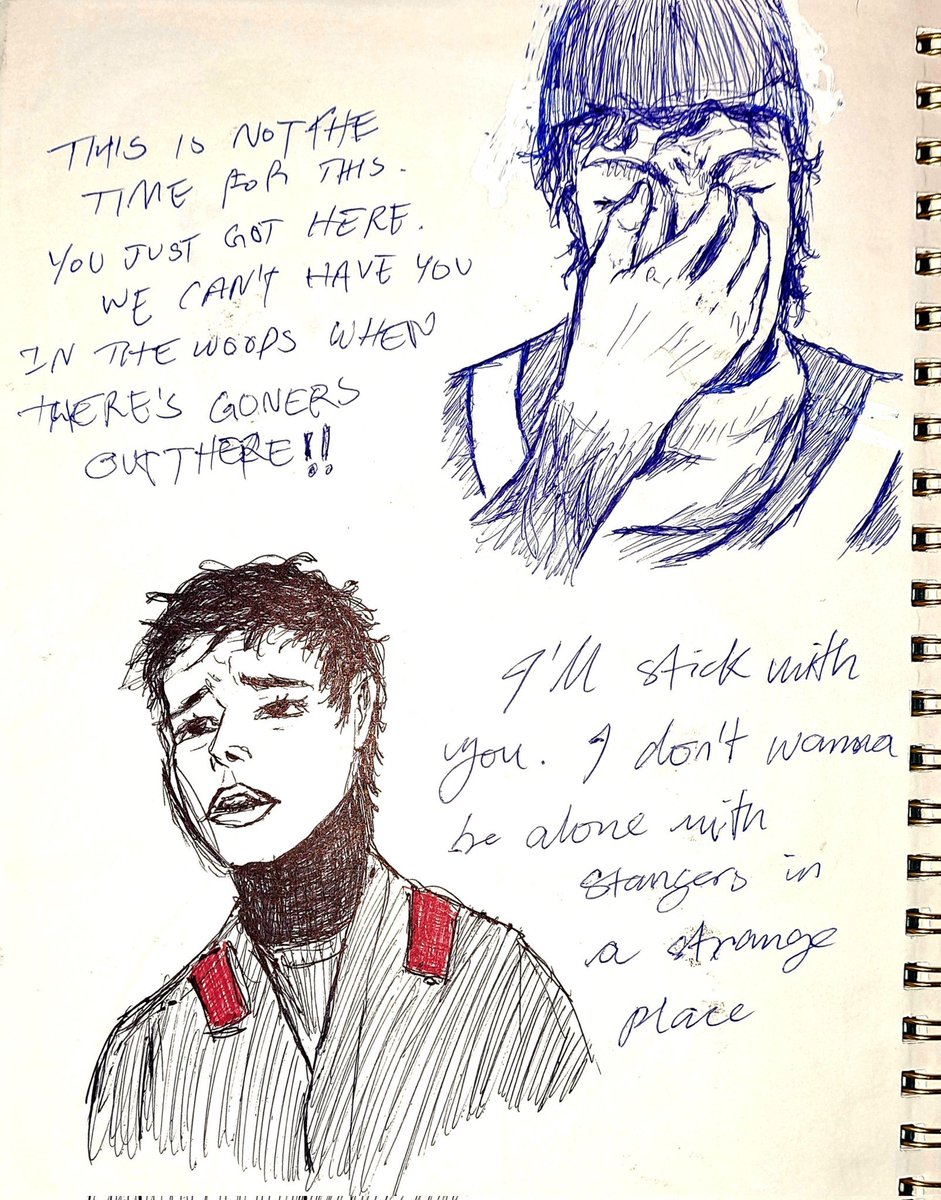 THIS IS NOT THE
TIME FOR THIS.
YOU JUST GOT HERE.
WE CAN'T HAVE YOU
IN THE WOODS WHEN
THERE'S GONERS
OUT THERE!!
I'll stick with
you. I don't wanna
be alone with
stangers in
a strange
place